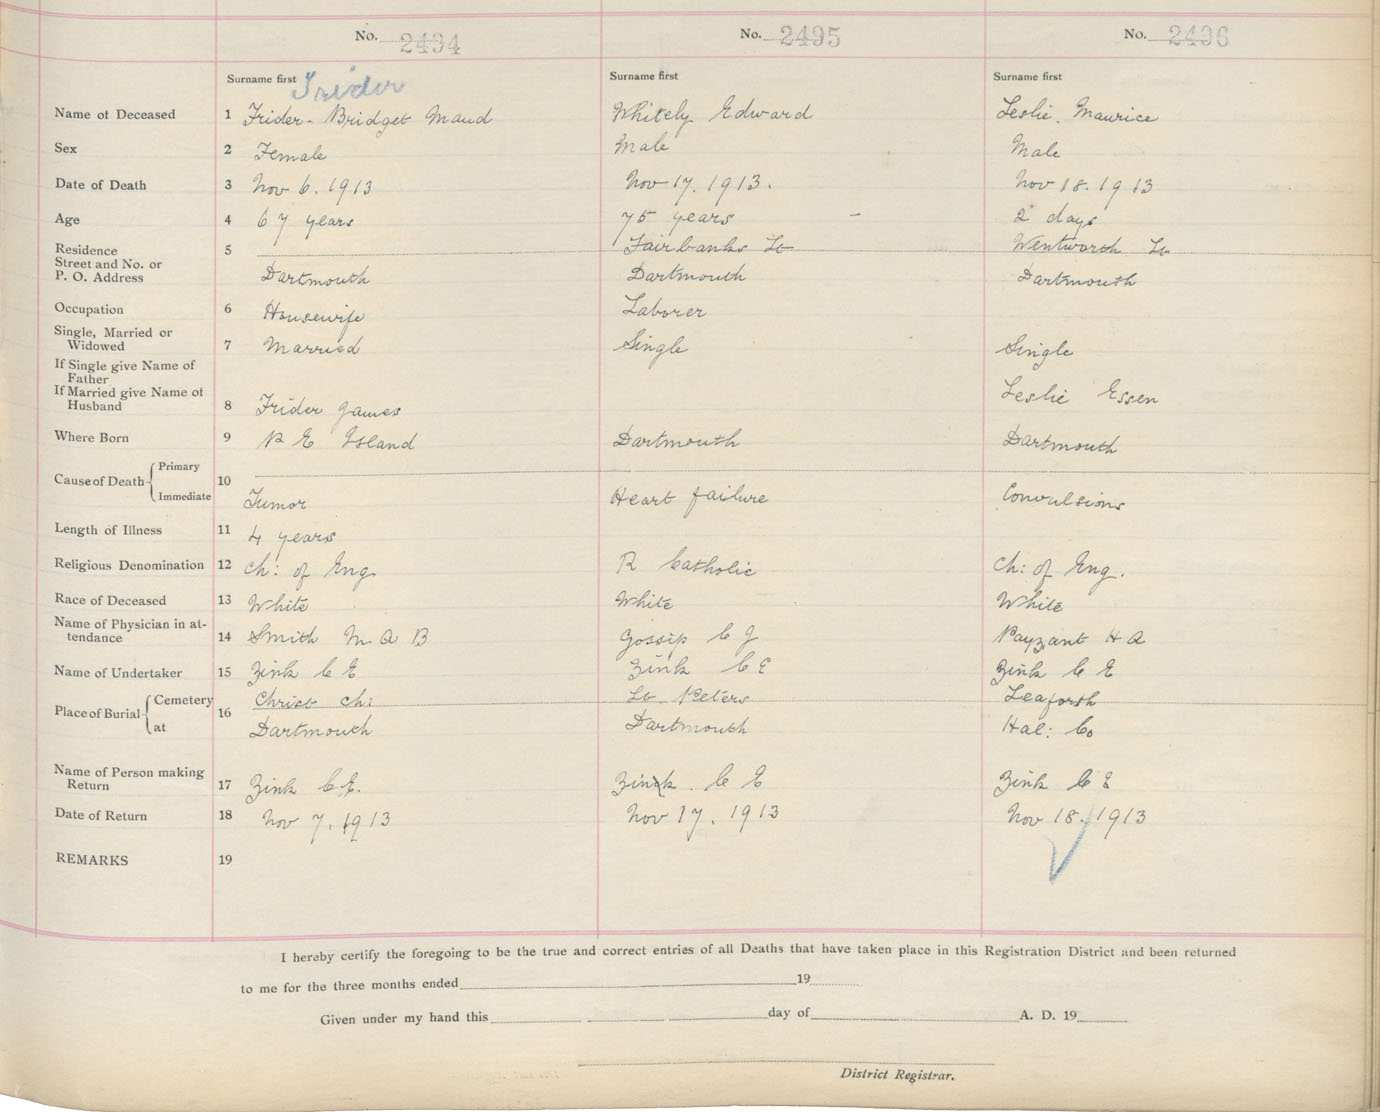 No. 2494 No. 2495 No. 2496
Surname first Trider Surname first Surname first
Name of Deceased 1 Trider - Bridget Maud Whitely Edward Leslie. Maurice
Sex 2 Female Male Male
Date of Death 3 Nov 6. 1913 Nov 17. 1913. Nov 18. 1913
Age 4 67 years 75 years - 2 days
Residence 5 Fairbanks St Wentworth St
Street and No. or
P. O. Address Dartmouth Dartmouth Dartmouth
Occupation 6 Housewife Laborer
Single, Married or
Widowed 7 Married Single Single
If Single give Name of
Father
If Married give Name of Leslie Essen
Husband 8 Trider James
Where Born 9 P E Island Dartmouth Dartmouth
Cause of Death Primary 10
Immediate Tumor Heart failure Convulsions
Length of Illness 11 4 years
Religious Denomination 12 Ch: of Eng R Catholic Ch: of Eng.
Race of Deceased 13 White White White
Name of Physician in at-
tendance 14 Smith M A B Gossip C J Payzant H A
Name of Undertaker 15 Zink C E Zink C E Zink C E
Place of Burial Cemetery 16 Christ Ch: St Peters Seaforth
at Dartmouth Dartmouth Hal: Co
Name of Person making
Return 17 Zink C E. Zink. C E Zink C E
Date of Return 18 Nov 7. 1913 Nov 17. 1913 Nov 18. 1913
REMARKS 19
I hereby certify the foregoing to be the true and correct entries of all Deaths that have taken place in this Registration District and been returned
to me for the three months ended 19
Given under my hand this day of A. D. 19
District Registrar.